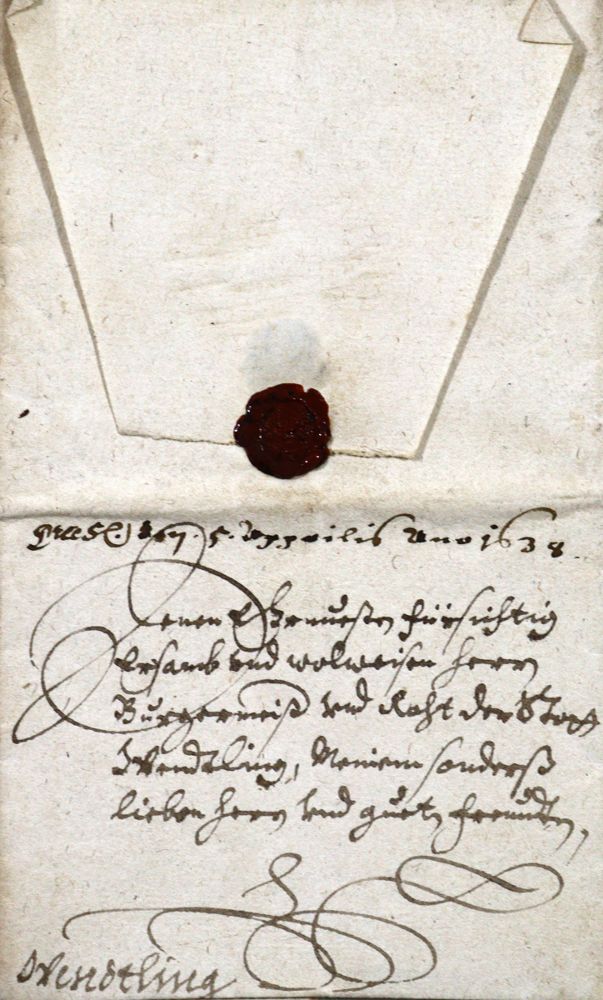 den 5. Apprilis Anno 1638.
Denen Ehrnuesten fürsichtig
Ersamb vnd wolweisen herrn
Burgermeist vnd Raht der Statt
Wendtling, Meinem sonderß
lieben herrn vnd guetn freundtn,
Wendtling